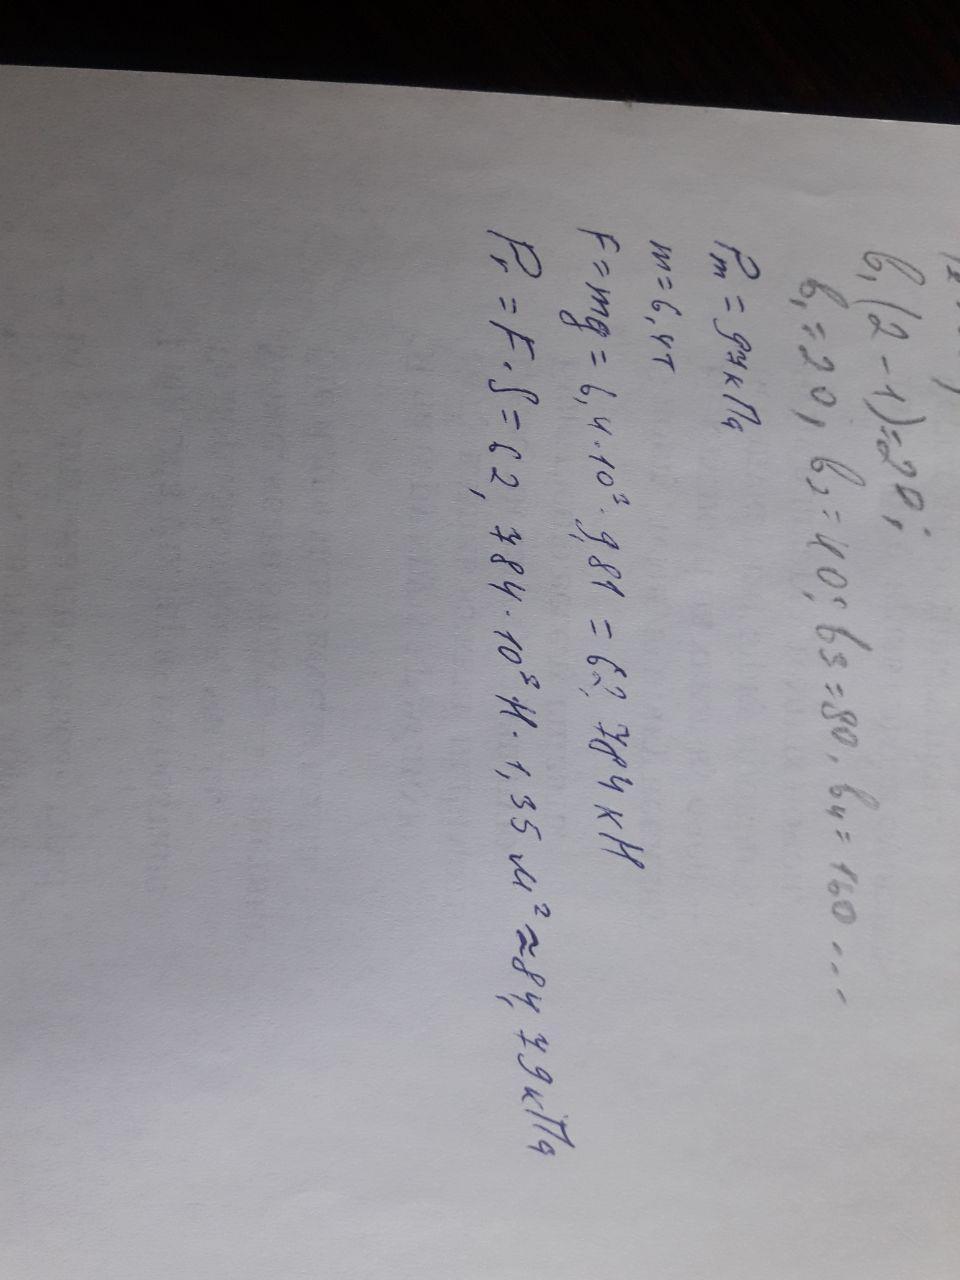 b₁(2-1)=20;
b₁=20, b₂=40; b₃=80, b₄=160...
Pm = 97кПа
m=6,4т
F=mg = 6,4·10³·9,81 = 62,784кН
P₁=F·S=62,784·10³Н·1,35м²≈84,79кПа